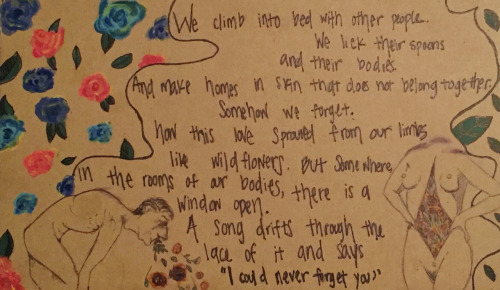 We climb into bed with other people.
We lick their spoons
and their bodies.
And make homes in skin that does not belong together.
Somehow we forget.
how this love sprouted from our limbs
like wildflowers. But somewhere
in the rooms of our bodies, there is a
window open.
A song drifts through the
lace of it and says
"I could never forget you"